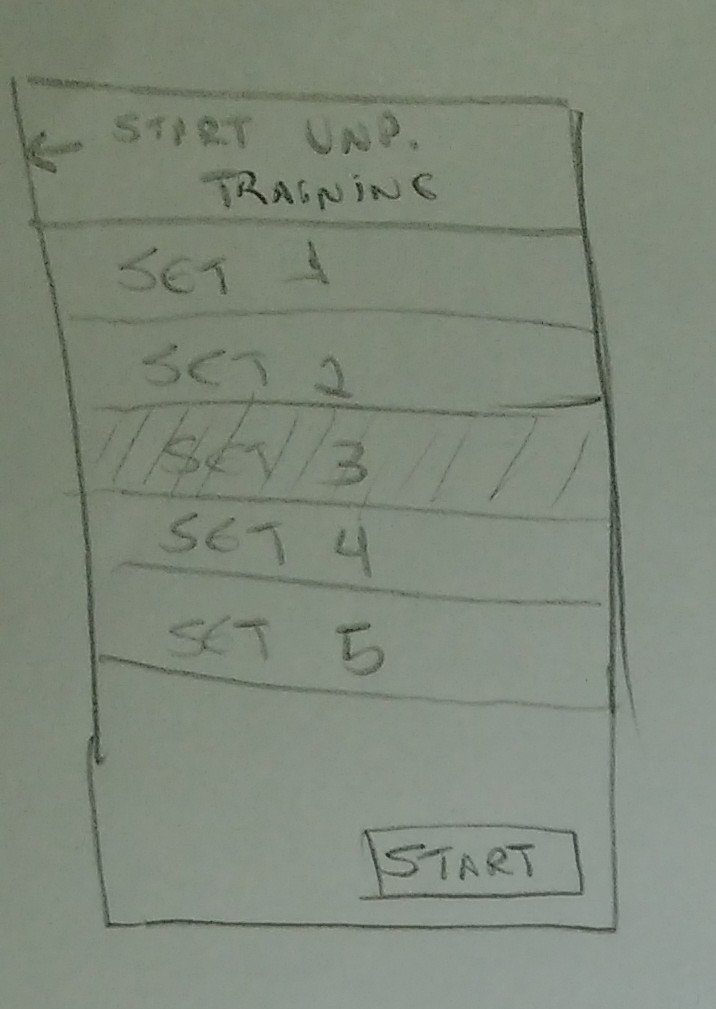 START UNP.
TRAINING
SET 1
SET 2
SET 3
SET 4
SET 5
START